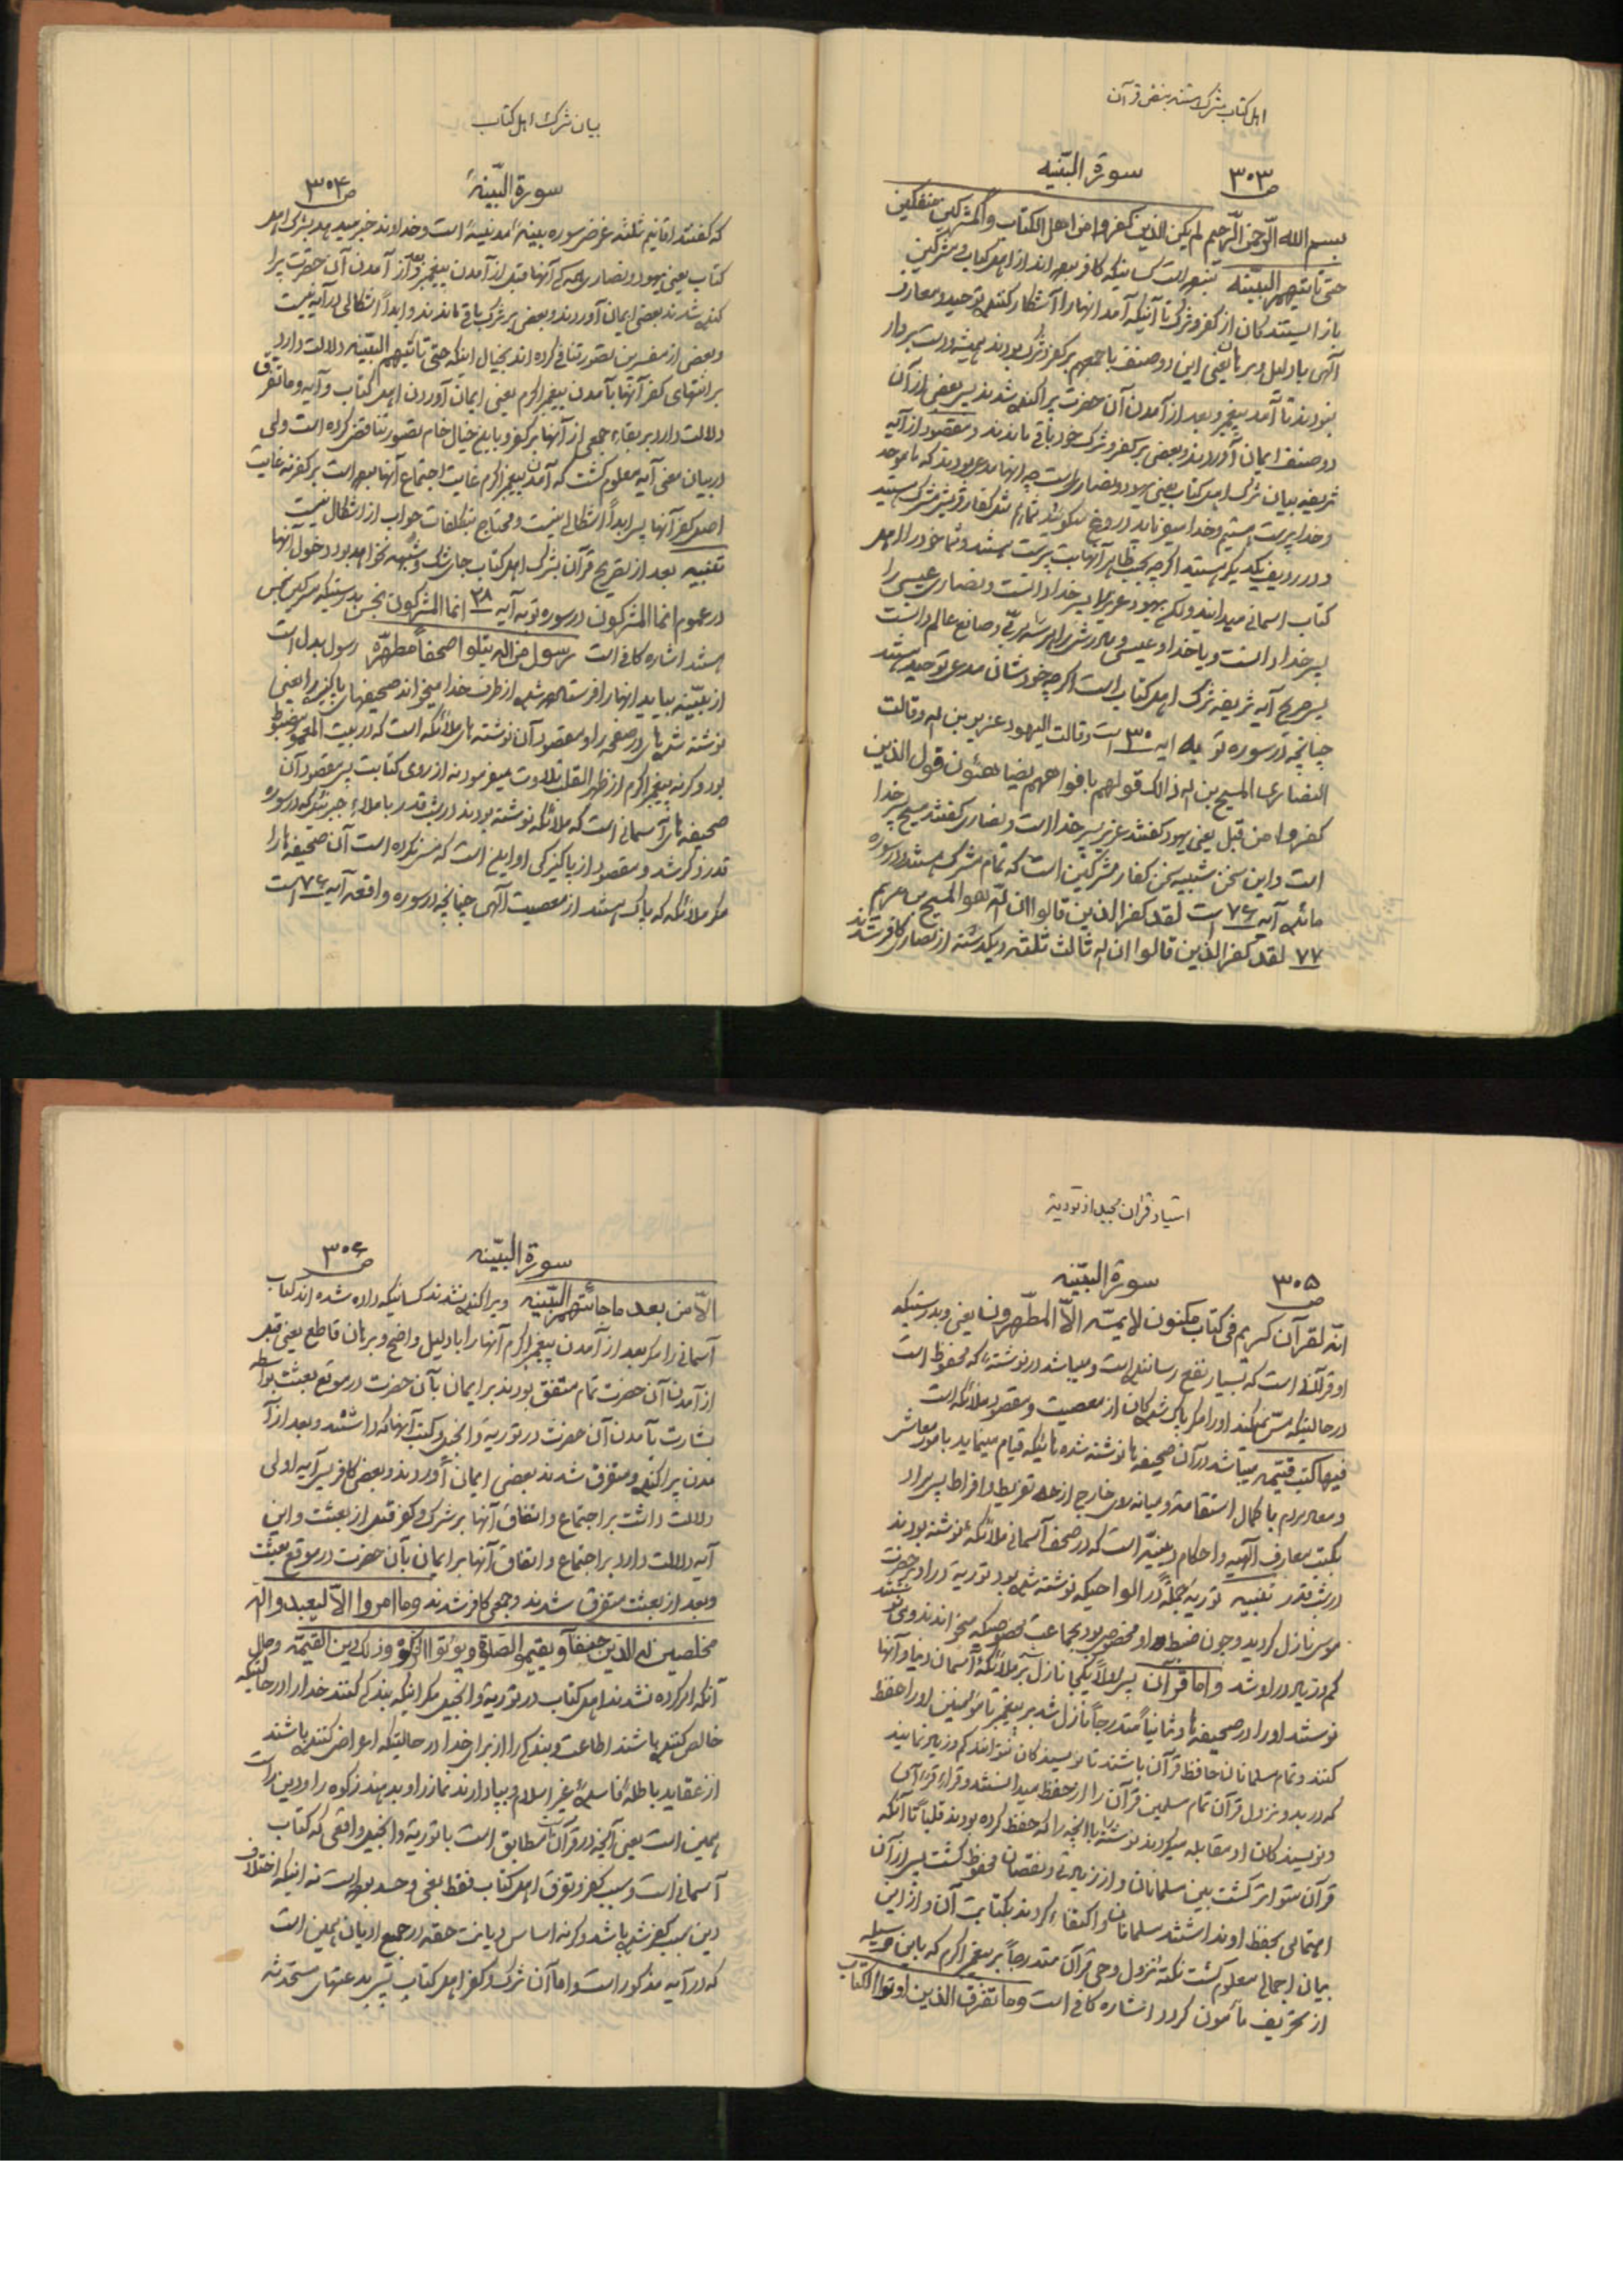 اهل کتاب مشرک هستند بنص قرآن
ص ۳۰۳
سورة البیّنه
بسم الله الرّحمن الرّحیم لم یکن الذین کفروا من اهل الکتاب والمشرکین منفکین
حتی تأتیهم البیّنه نبوده است کسانیکه کافر بوده اند از اهل کتاب و مشرکین
باز ایستندکان از کفر و شرک تا آنکه آمد انها را آشکار کننده توحید و معارف
آلهی با دلیل و برهان یعنی این دو صنف باجمعهم بر کفر و شرک بودند همیشه دست بردار
نبودند تا آمد پیغمبر و بعد از آمدن آن حضرت پراکنده شدند پس بعضی از آن
دو صنف ایمان آوردند و بعضی بر کفر و شرک خود باقی ماندند و مقصود از آیه
شریفه بیان شرک اهل کتاب یعنی یهود و نصاری است چه انها مدعی بودند که ما موحد
و خدا پرست هستیم و خدا میفرماید دروغ میکویند تمام مثل کفار قریش مشرک هستند
و در ردیف یکدیگر هستید اکرچه بحسب ظاهر آنها بت پرست هستند و شما خود را اهل
کتاب اسمانی میدانید ولکن یهود عزیر را پسر خدا دانست و نصاری عیسی را
پسر خدا دانست و یا خدا و عیسی و مادرش را هر سه مربّی و صانع عالم دانست
پس صریح آیه شریفه شرک اهل کتاب است اکرچه خودشان مدعی توحید هستند
چنانچه در سوره توبه ایه ۳۰ است وقالت الیهود عزیر بن الله وقالت
النصاری المسیح بن الله ذالک قولهم بافواههم یضاهئون قول الذین
کفروا من قبل یعنی یهود کفتند عزیر پسر خدا است و نصاری کفتند مسیح پسر خدا
است و این سخن شبیه سخن کفار مشرکین است که تمام مشرک هستند در سوره
مائده آیه ۷۶ است لقد کفر الذین قالوا ان الله هو المسیح بن مریم
۷۷ لقد کفر الذین قالوا ان الله ثالث ثلثه و یکدسته از نصاری کافر شدند
بیان شرک اهل کتاب
سورة البیّنة
ص ۳۰۴
که کفتند اقانیم ثلثه غرض سوره بینه مدنیه است و خداوند خبر میدهد بشرک اهل
کتاب یعنی یهود و نصاری که آنها قبل از آمدن پیغمبر و بعد از آمدن آن حضرت پرا
کنده شدند بعضی ایمان آوردند و بعضی بر شرک باقی ماندند و ابداً اشکالی در آیه نیست
وبعضی از مفسرین تصور تنافی کرده اند بخیال اینکه حتی تأتیهم البیّنه دلالت دارد
بر انتهای کفر آنها بآمدن پیغمبر اکرم یعنی ایمان آوردن اهل کتاب و آیه وما تفرق
دلالت دارد بر بقاء جمعی از آنها بر کفر و باین خیال خام تصور تناقض کرده است ولی
در بیان معنی آیه معلوم کشت که آمدن پیغمبر اکرم غایت اجتماع آنها بوده است بر کفر نه غایت
اصل کفر آنها پس ابداً اشکالی نیست و محتاج بتکلفات جواب از اشکال نیست
تنبیه بعد از تصریح قرآن بشرک اهل کتاب جای شک و شبهه نخواهد بود دخول آنها
در عموم انما المشرکون در سوره توبه آیه ۲۸ انما المشرکون نجس بدرستیکه مشرکین نجس
هستند اشاره کافی است رسول من الله یتلوا صحفاً مطهرّه رسول بدل است
از بیّنه بیاید انها را فرستاده شده از طرف خدا میخواند صحیفهای پاکیزه را یعنی
نوشته شده های در صفحه را و مقصود آن نوشته های ملائکه است که در بیت المعمور مضبوط
بود وکرنه پیغمبر اکرم از ظهر القلب تلاوت میفرمود نه از روی کتابت پس مقصود آن
صحیفه های آسمانی است که ملائکه نوشته بودند در شب قدر باملاء جبرئیل که در سوره
قدر ذکر شد و مقصود از پاکیزکی او این است که مس نکرده است آن صحیفه ها را
مکر ملائکه که پاک هستند از معصیت آلهی چنانچه در سوره واقعه آیه ۷۶ است
امتیاز قرآن مجید از توریة
ص ۳۰۵
سورة البیّنه
انّه لقرآن کریم فی کتاب مکنون لا یمسّه الاّ المطّهرون یعنی و بدرستیکه
او قرآنی است که بسیار نفع رساننده است و میباشد در نوشته ای که محفوظ است
در حالتیکه مسّ نمیکند او را مکر پاک شدکان از معصیت و مقصود ملائکه است
فیها کتب قیّمه میباشد در آن صحیفه ها نوشته شده هائیکه قیام مینماید بامور معاش
و معاد مردم با کمال استقامة و میانه روی خارج از حد تفریط و افراط پس مراد
بکتب معارف آلهیه و احکام دینیّه است که در صحف آسمانی ملائکه نوشته بودند
در شب قدر تنبیه توریة جملةً در الواحیکه نوشته شده بود توریة در او بر حضرت
موسی نازل کردید و چون ضبط او مخصوص بود بجماعت مخصوصیکه میخواندند و می نوشتند
کم و زیاد در او شد و اما قرآن پس اولاً یکجا نازل شد بر ملائکه آسمان دنیا و آنها
نوشتند او را در صحیفه ها و ثانیاً متدرجاً نازل شد بر پیغمبر تا مؤمنین او را حفظ
کنند و تمام مسلمانان حافظ قرآن باشند تا نویسندکان نتوانند کم و زیاد نمایند
که در بدو نزول قرآن تمام مسلمین قرآن را از حفظ میدانستند و قراء قرآن
و نویسندکان او مقابله میکردند نوشته را با انچه را که حفظ کرده بودند قلباً تا آنکه
قرآن متواتر کشت بین مسلمانان و از زیادتی و نقصان محفوظ کشت پس از آن
اهتمامی بحفظ او نداشتند مسلمانان و اکتفاء کردند بکتابت آن و از این
بیان اجمالی معلوم کشت نکته نزول وحی قرآن متدرجاً بر پیغمبر اکرم که باین وسیله
از تحریف مأمون کردد اشاره کافی است وما تفرق الذین اوتوا الکتاب
سورة البیّنه
ص ۳۰۶
الاّ من بعد ما جائتهم البیّنه و پراکنده نشدند کسانیکه داده شده اند کتاب
آسمانی را مکر بعد از آمدن پیغمبر اکرم آنها را با دلیل واضح و برهان قاطع یعنی قبل
از آمدن آن حضرت تمام متفق بودند بر ایمان بآن حضرت در موقع بعثت بواسطه
بشارت بآمدن آن حضرت در توریة و انجیل و کتب آنها که داشتند و بعد از آ
مدن پراکنده و متفرق شدند بعضی ایمان آوردند و بعضی کافر پس آیه اولی
دلالت داشت بر اجتماع و اتفاق آنها بر شرک و کفر قبل از بعثت و این
آیه دلالت دارد بر اجتماع و اتفاق آنها بر ایمان بآن حضرت در موقع بعثت
وبعد از بعثت متفرق شدند و جمعی کافر شدند وما امروا الاّ لیعبدوا الله
مخلصین له الدین حنفآء ویقیموا الصلوة ویؤتوا الزکوة وذلک دین القیّمه وحال
آنکه امر کرده نشدند اهل کتاب در توریة و انجیل مکر اینکه بندکی کنند خدا را در حالتیکه
خالص کننده باشند اطاعت و بندکی را از برای خدا در حالتیکه اعراض کننده باشند
از عقاید باطله فاسده غیر اسلام و بپا دارند نماز را و بدهند زکوة را و دین راست
همین است یعنی آنچه در قرآن است مطابق است با توریة و انجیل واقعی که کتاب
آسمانی است و سبب کفر و تفرق اهل کتاب فقط بغی و حسد بوده است نه اینکه اختلاف
دین سبب کفر شده باشد وکرنه اساس دیانت حقه در جمیع ادیان همین است
که در آیه مذکور است و اما آن شرک و کفر اهل کتاب پس بدعتهای مستحدثه